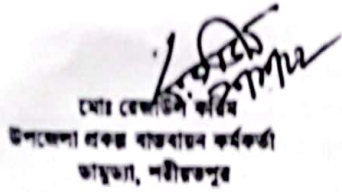 মোঃ রেজাউল করিম
উপজেলা প্রকল্প বাস্তবায়ন কর্মকর্তা
ডামুড্যা, শরীয়তপুর